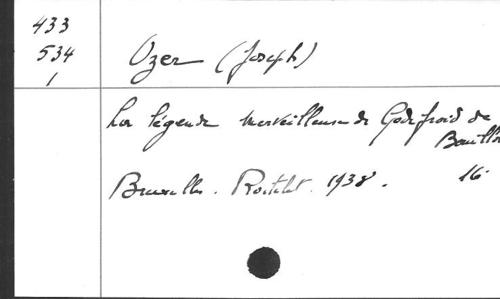 433
534
1
Ozer (Joseph)
La légende merveilleuse de Godefroid de
Bouillon
Bruxelles. 1938.
16